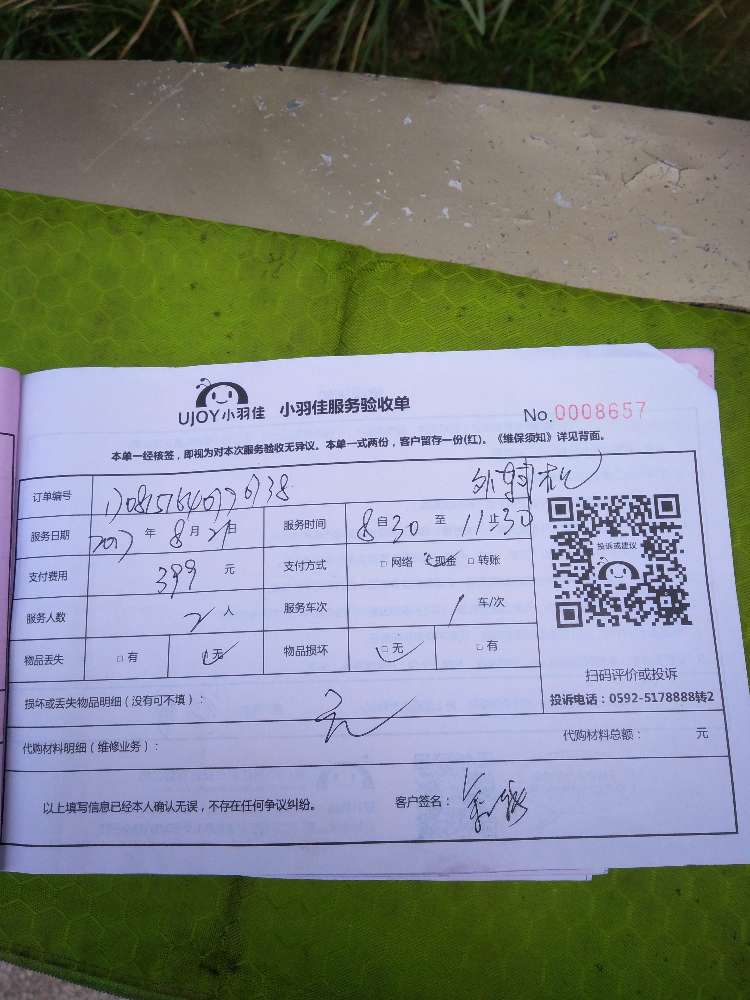 UJOY小羽佳 小羽佳服务验收单 No.0008657
本单一经核签，即视为对本次服务验收无异议。本单一式两份，客户留存一份(红)。《维保须知》详见背面。
订单编号
服务日期 2017 年 8 月 21 日 服务时间 8 自 30 至 11 止 30
投诉或建议
支付费用 399 元 支付方式 □ 网络 □ 现金 □ 转账
服务人数 2 人 服务车次 1 车/次
物品丢失 □ 有 □ 无 物品损坏 □ 无 □ 有
扫码评价或投诉
投诉电话：0592-5178888转2
损坏或丢失物品明细（没有可不填）： 无
代购材料明细（维修业务）： 代购材料总额： 元
以上填写信息已经本人确认无误，不存在任何争议纠纷。 客户签名：